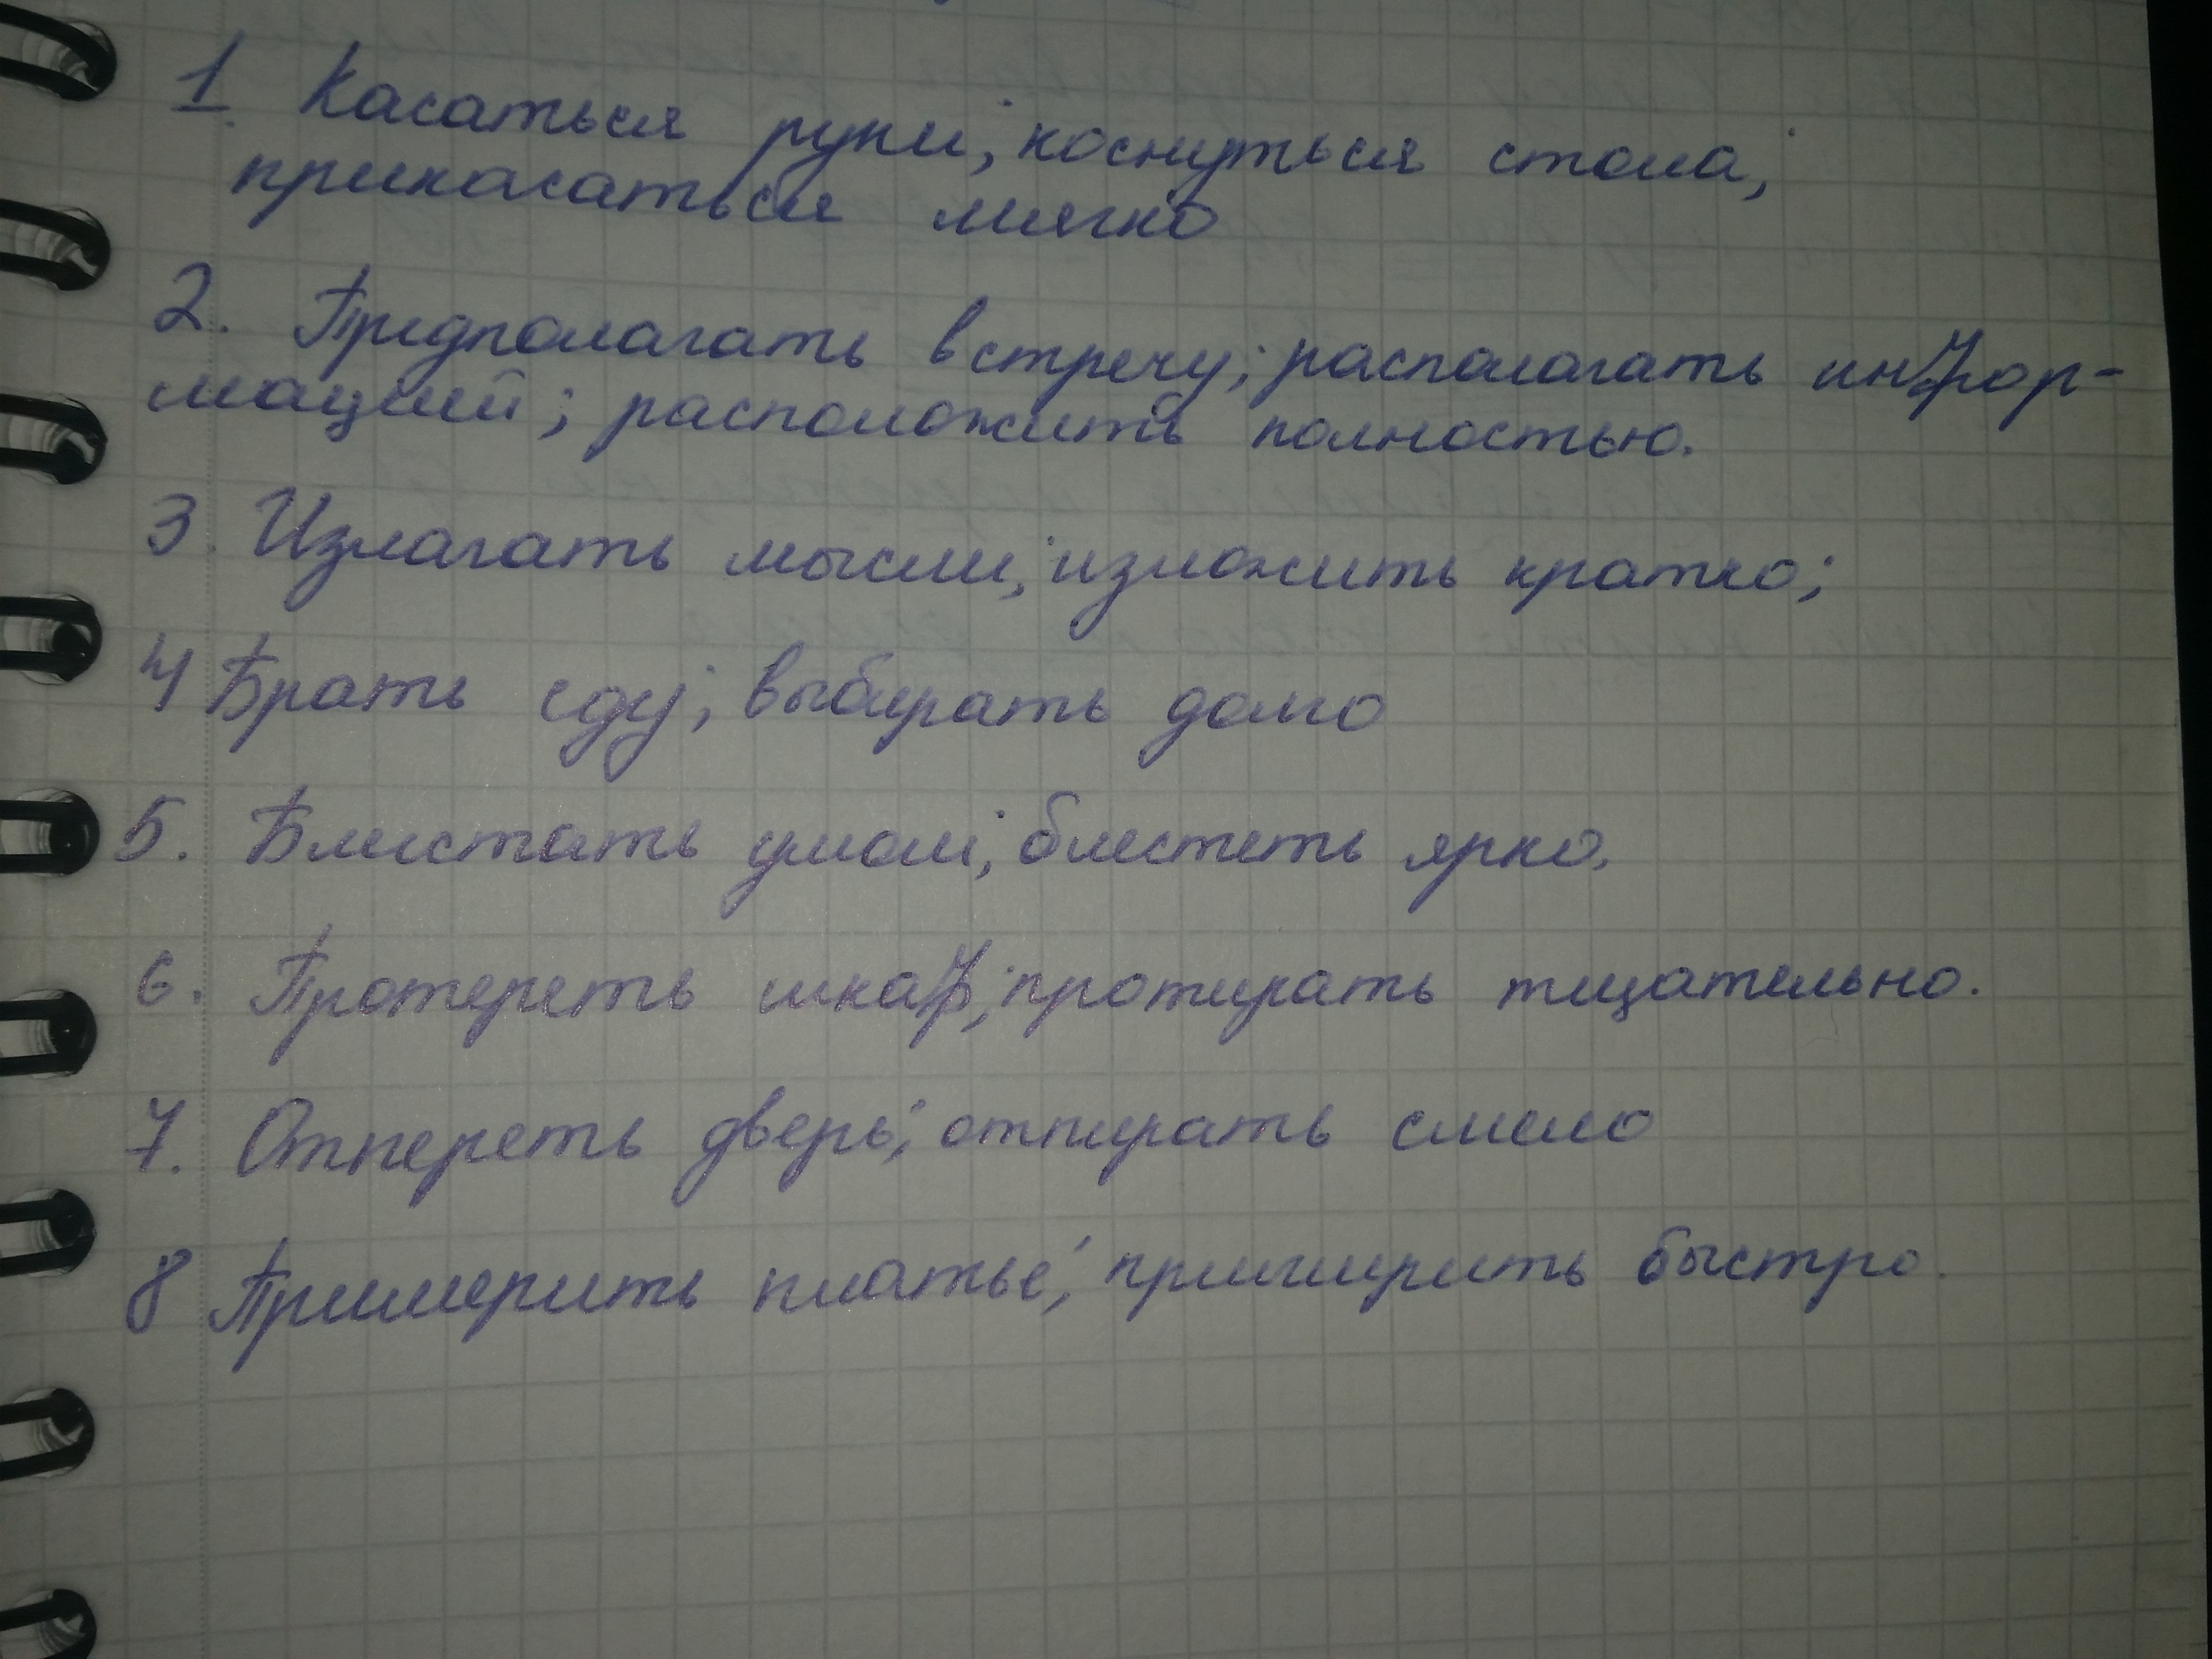 1. Касаться руки; коснуться стола;
прикасаться мягко
2. Предполагать встречу; располагать инфор-
мацией; расположить полностью.
3. Излагать мысли; изложить кратко;
4 Брать еду; выбирать долго
5. Блистать умом; блестеть ярко.
6. Протереть шкаф; протирать тщательно.
7. Отпереть дверь; отпирать смело
8 Примерить платье; примирить быстро.